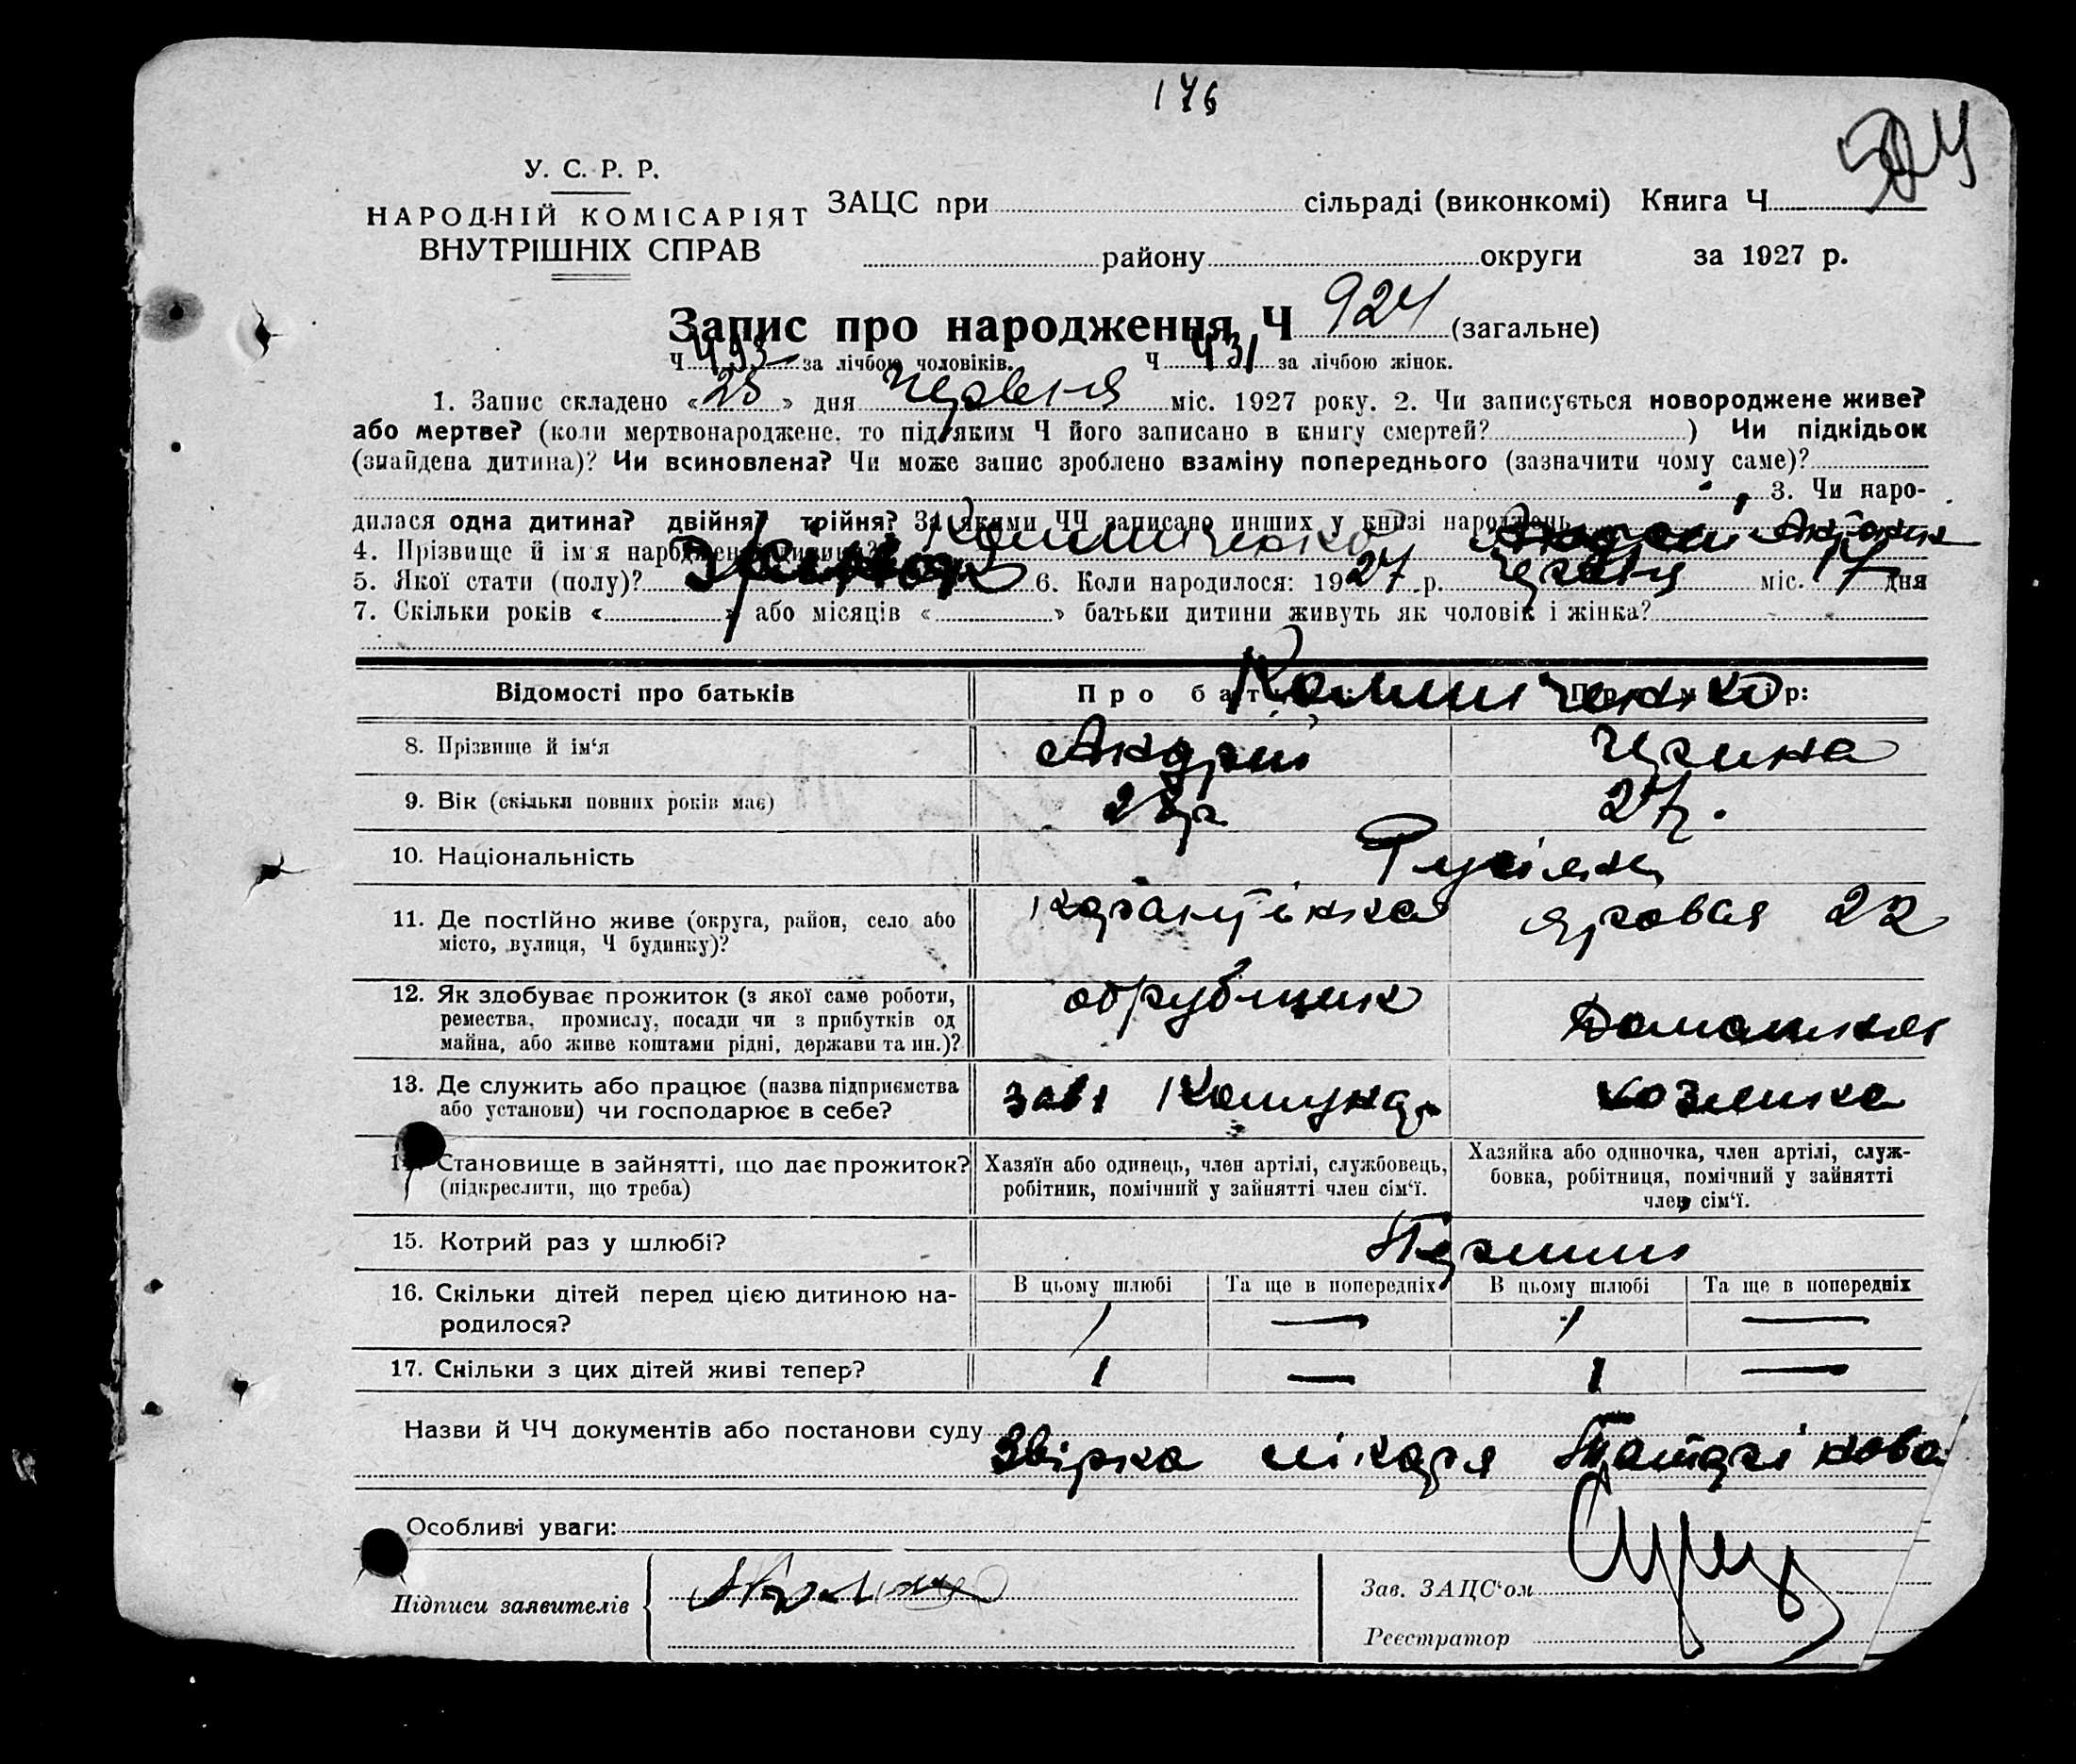 176
У. С. Р. Р.
НАРОДНІЙ КОМІСАРІЯТ
ВНУТРІШНІХ СПРАВ
ЗАЦС при сільраді (виконкомі) Книга Ч
району округи за 1927 р.
Запис про народження Ч 924 (загальне)
Ч 493 за лічбою чоловіків. Ч 431 за лічбою жінок.
1. Запис складено «25» дня Червня міс. 1927 року. 2. Чи записується новороджене живе?
або мертве? (коли мертвонароджене, то під яким Ч його записано в книгу смертей? ) Чи підкідьок
(знайдена дитина)? Чи всиновлена? Чи може запис зроблено взаміну попереднього (зазначити чому саме)?
3. Чи наро-
дилася одна дитина? двійня? трійня? За якими ЧЧ записано инших у книзі народжень
4. Прізвище й ім'я народженої дитини?
5. Якої стати (полу)? 6. Коли народилося: 1927 р. червня міс. 17 дня
7. Скільки років « » або місяців « » батьки дитини живуть як чоловік і жінка?
Відомості про батьків Про батька: Про матір:
8. Прізвище й ім'я Андрій
9. Вік (скільки повних років має) 28р 27р.
10. Національність
11. Де постійно живе (округа, район, село або Яровая 22
місто, вулиця, Ч будинку)?
12. Як здобуває прожиток (з якої саме роботи, обрубщик Домашняя
ремества, промислу, посади чи з прибутків од
майна, або живе коштами рідні, держави та ин.)?
13. Де служить або працює (назва підприємства зав Комунар хозяйка
або установи) чи господарює в себе?
14. Становище в зайнятті, що дає прожиток? Хазяїн або одинець, член артілі, службовець, Хазяйка або одиночка, член артілі, служ-
(підкреслити, що треба) робітник, помічний у зайнятті член сім'ї. бовка, робітниця, помічний у зайнятті
член сім'ї.
15. Котрий раз у шлюбі? Перший
16. Скільки дітей перед цією дитиною на- В цьому шлюбі Та ще в попередніх В цьому шлюбі Та ще в попередніх
родилося? 1 — 1 —
17. Скільки з цих дітей живі тепер? 1 — 1 —
Назви й ЧЧ документів або постанови суду Звірка лікаря
Особливі уваги:
Підписи заявителів
Зав. ЗАЦС'ом
Реєстратор